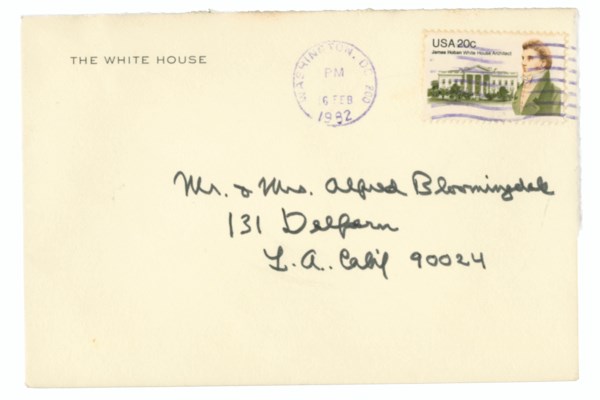 THE WHITE HOUSE
WASHINGTON, DC 200
PM
16 FEB
1982
USA 20c
James Hoban White House Architect
Mr. & Mrs. Alfred Bloomingdale
131 Delfern
L.A. Calif 90024